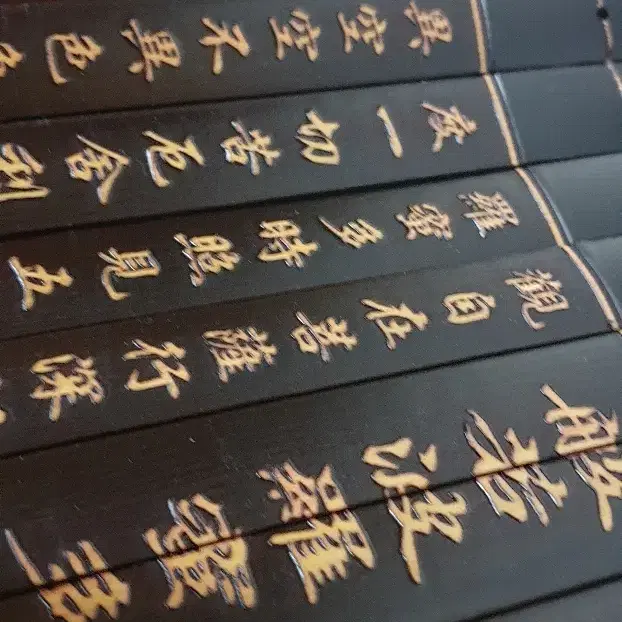 般若波羅蜜多
觀自在菩薩行深
羅蜜多時照見五
度一切苦厄舍利
異空空不異色